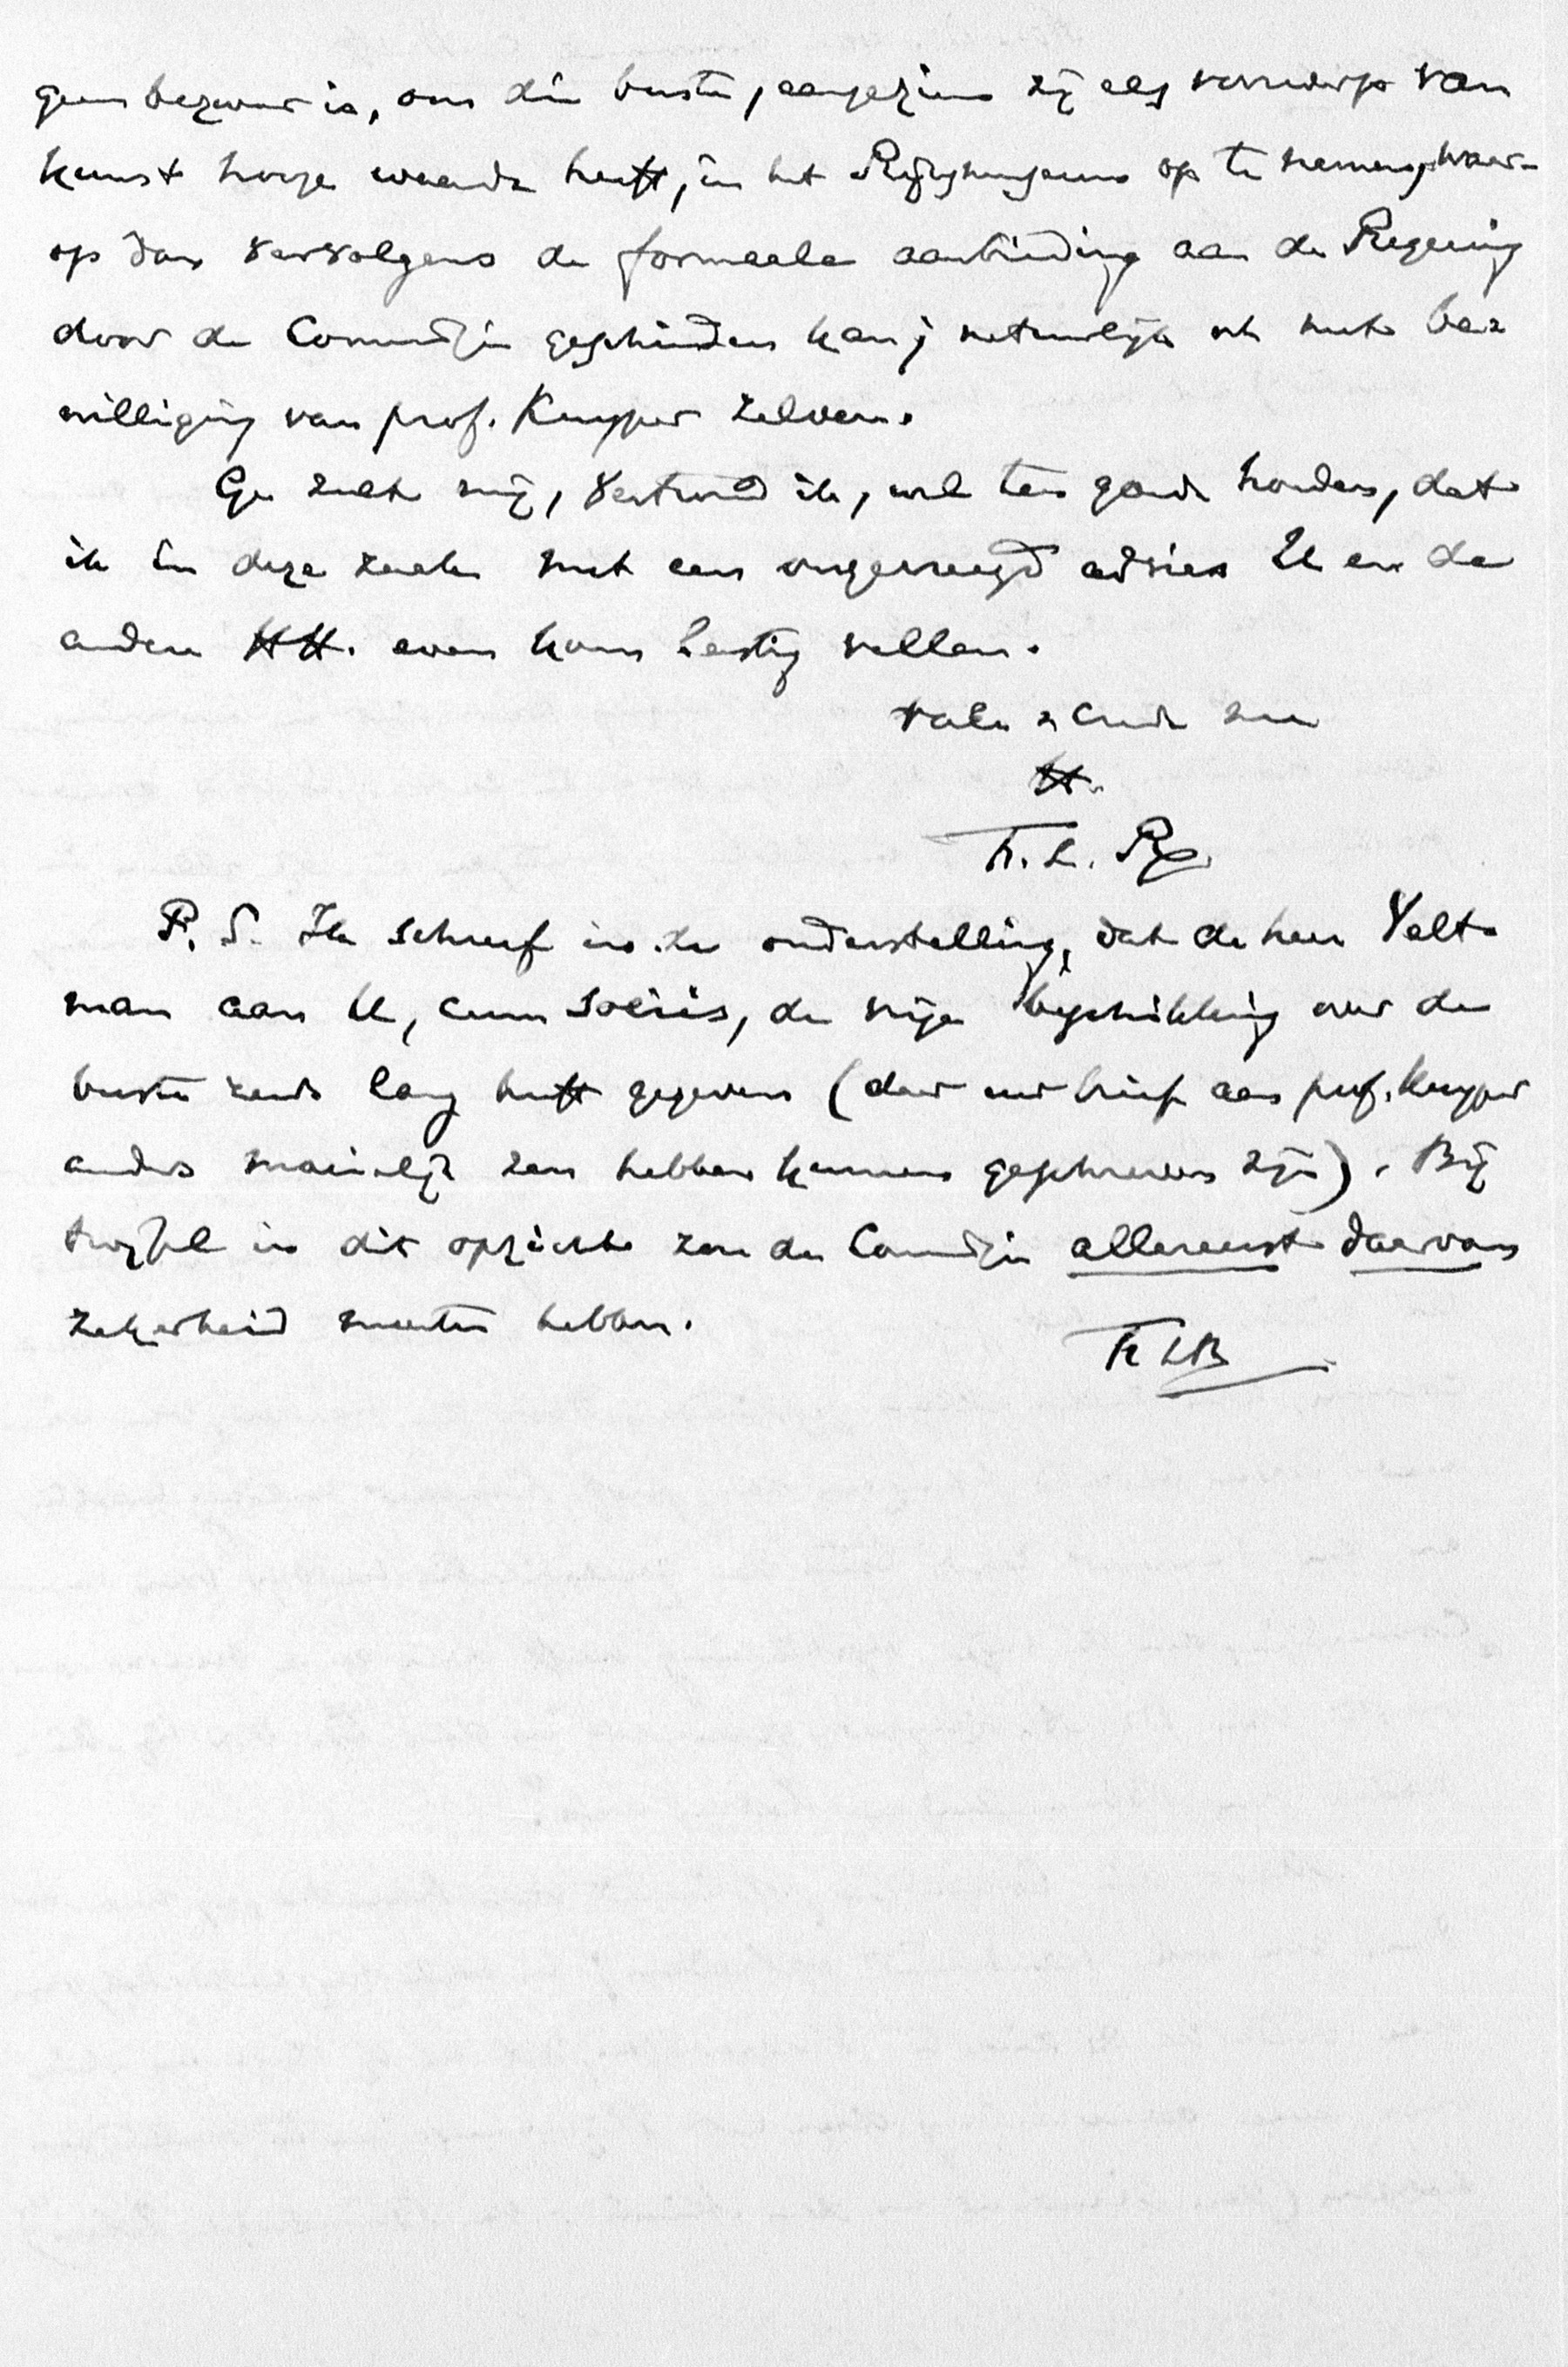 geen bezwaar is, om die buste, aangezien zij als voorwerp van
kunst hooge waarde heeft, in het Rijksmuseum op te nemen, waar-
op dan vervolgens de formeele aanbieding aan de Regeering
door de Commissie geschieden kan; natuurlijk ook met be-
williging van prof. Kuyper zelven.
Ge zult mij, vertrouw ik, wel ten goede houden, dat
ik in deze zaak met een ongevraagd advies U en de
andere HH. even kom lastig vallen.
Vale & crede me
tt.
F. L. R.
P. S. Ik schreef in de onderstelling, dat de heer Velt-
man aan U, cum sociis, de vrije beschikking over de
buste reeds lang heeft gegeven (daar uw brief aan prof. Kuyper
anders moeielijk zou hebben kunnen geschreven zijn). Bij
twijfel in dit opzicht zou de Commissie allereerst daarvan
zekerheid moeten hebben.
FLR